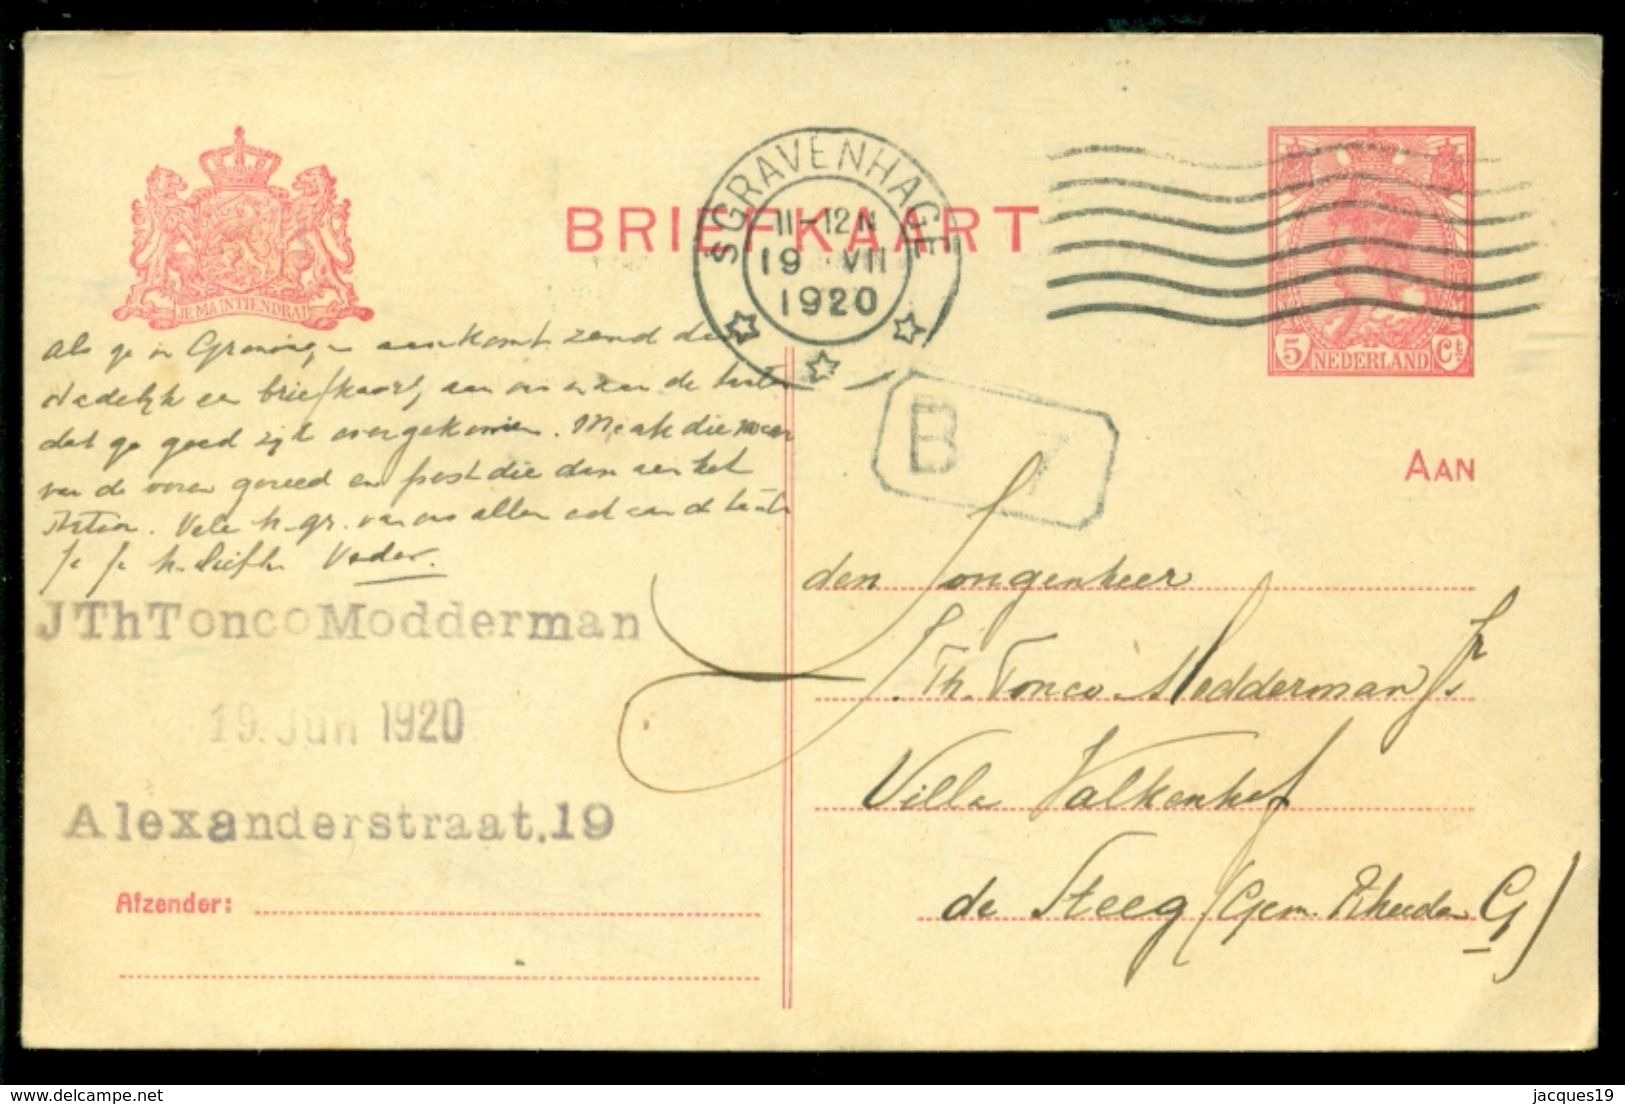 BRIEFKAART
SGRAVENHAGE
11-12 N
19 VII
1920
JE MAINTIENDRAI
5 NEDERLAND Ct
B 7
AAN
Als ge in Groningen aankomt zend dan
dadelijk een briefkaart, aan ons en aan de tantes
dat ge goed zijt overgekomen. Maak die
van de voren gereed en post die dan aan het
Station. Vele h. gr. van ons allen ook van de tante
Vader.
JThToncoModderman
19. JUli 1920
Alexanderstraat.19
Afzender:
den Jongenheer
J. Th. Tonco Modderman Jr
Villa Valkenhof
de Steeg (Gem. Rheden G)
delcampe.net
jacques19